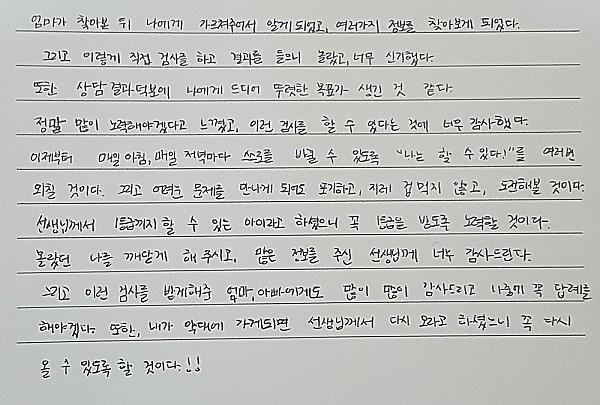 엄마가 찾아본 뒤 나에게 가르쳐주어서 알게되었고, 여러가지 정보를 찾아보게 되었다.
그리고 이렇게 직접 검사를 하고 결과를 들으니 놀랐고, 너무 신기했다.
또한 상담 결과덕분에 나에게 드디어 뚜렷한 목표가 생긴 것 같다.
정말 많이 노력해야겠다고 느꼈고, 이런 검사를 할 수 있다는 것에 너무 감사했다.
이제부터 매일 아침, 매일 저녁마다 스스로를 바꿀 수 있도록 "나는 할 수 있다!"를 여러번
외칠 것이다. 그리고 어려운 문제를 만나게 되어도 포기하고, 지레 겁먹지 않고, 도전해볼 것이다.
선생님께서 1등급까지 할 수 있는 아이라고 하셨으니 꼭 1등급을 받도록 노력할 것이다.
몰랐던 나를 깨닫게 해 주시고, 많은 정보를 주신 선생님께 너무 감사드린다.
그리고 이런 검사를 받게해준 엄마, 아빠에게도 많이 많이 감사드리고 나중에 꼭 답례를
해야겠다. 또한, 내가 약대에 가게되면 선생님께서 다시 오라고 하셨으니 꼭 다시
올 수 있도록 할 것이다.!!